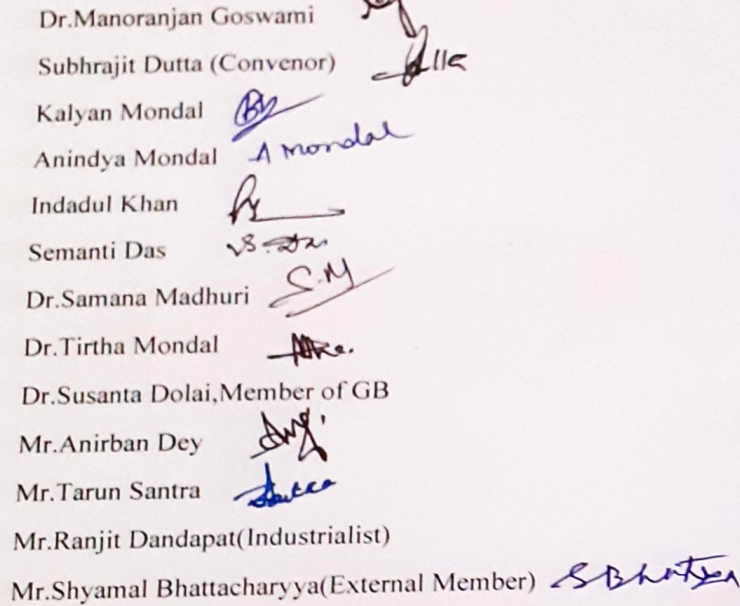 Dr.Manoranjan Goswami
Subhrajit Dutta (Convenor)
Kalyan Mondal
Anindya Mondal A Mondal
Indadul Khan
Semanti Das
Dr.Samana Madhuri S.M
Dr.Tirtha Mondal
Dr.Susanta Dolai,Member of GB
Mr.Anirban Dey
Mr.Tarun Santra
Mr.Ranjit Dandapat(Industrialist)
Mr.Shyamal Bhattacharyya(External Member)